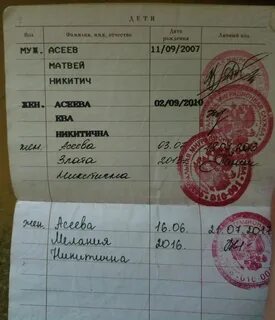 ДЕТИ
Пол Фамилия, имя, отчество Дата рождения Личный код
МУЖ. АСЕЕВ 11/09/2007
МАТВЕЙ
НИКИТИЧ
ЖЕН. АСЕЕВА 02/09/2010
ЕВА
НИКИТИЧНА
жен. Асеева 03.0
Злата
Никитична
жен. Асеева 16.06. 21.01.201
Мелания 2016.
Никитична